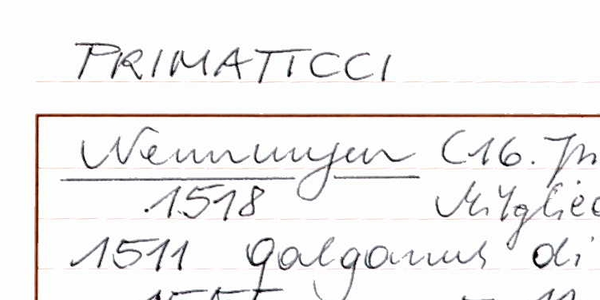 PRIMATICCI
Nennungen (16. Jh
1518 Mitglied
1511 galganus di